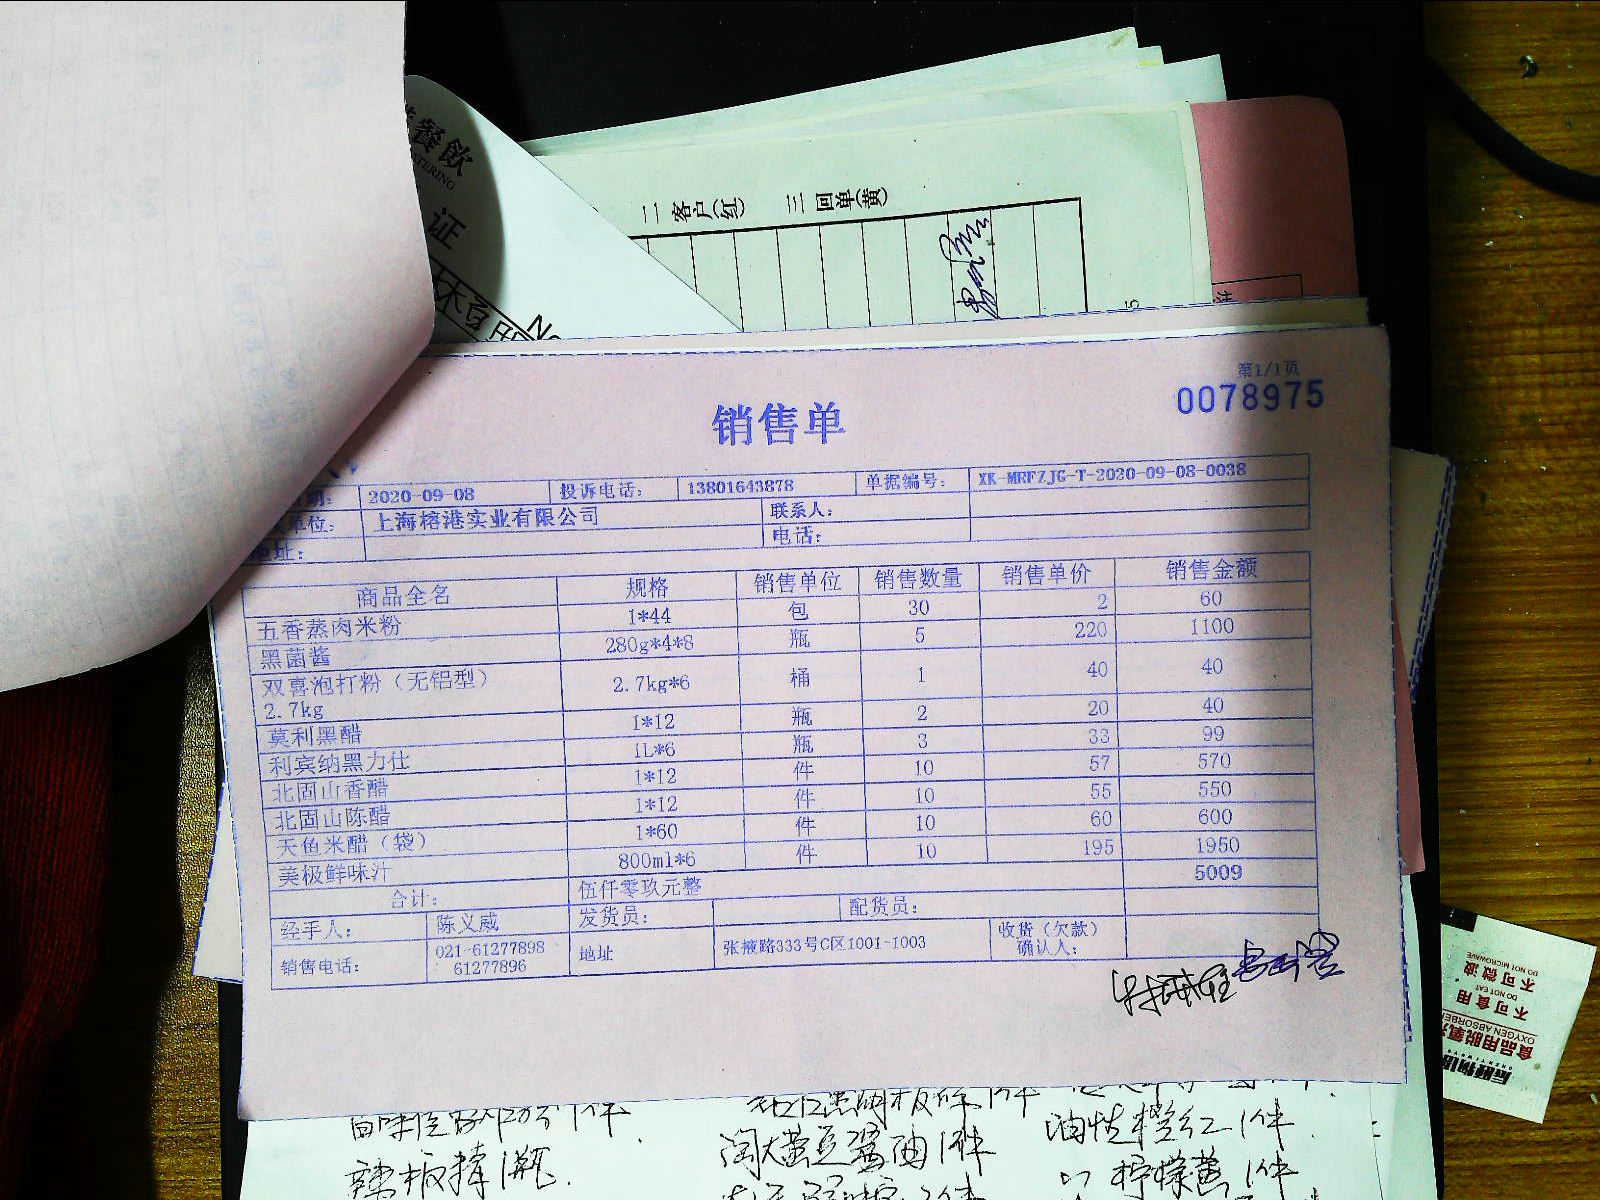 餐飲
证
二 客户(红) 三 回单(黄)
第1/1页
0078975
销售单
期: 2020-09-08 投诉电话: 13801643878 单据编号: XK-MRFZJG-T-2020-09-08-0038
单位: 上海榕港实业有限公司 联系人:
地址: 电话:
商品全名 规格 销售单位 销售数量 销售单价 销售金额
五香蒸肉米粉 1*44 包 30 2 60
黑菌酱 280g*4*8 瓶 5 220 1100
双喜泡打粉（无铝型） 2.7kg*6 桶 1 40 40
2.7kg
莫利黑醋 1*12 瓶 2 20 40
利宾纳黑力仕 1L*6 瓶 3 33 99
北固山香醋 1*12 件 10 57 570
北固山陈醋 1*12 件 10 55 550
天鱼米醋（袋） 1*60 件 10 60 600
美极鲜味汁 800ml*6 件 10 195 1950
合计: 伍仟零玖元整 5009
经手人: 陈义威 发货员: 配货员:
销售电话: 021-61277898 地址 张掖路333号C区1001-1003 收货（欠款）
61277896 确认人:
淘大黄豆酱油1件
油性橙红1件
柠檬黄1件
不可微波
DO NOT MICROWAVE
不可食用
DO NOT EAT
OXYGEN ABSORBER
食品用脱氧剂